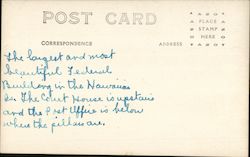 POST CARD
CORRESPONDENCE
ADDRESS
PLACE
STAMP
HERE
The largest and most
beautiful Federal
Building in the Hawaiian
Is. The Court House is upstairs
and the Post Office is below
where the pillars are.